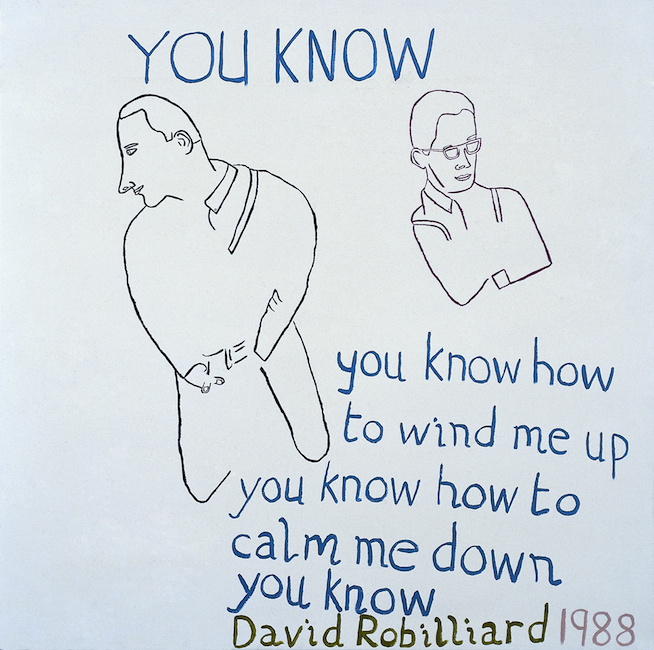 YOU KNOW
you know how
to wind me up
you know how to
calm me down
you know
David Robilliard 1988